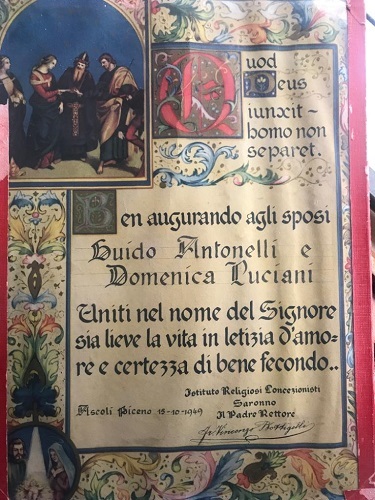 Quod
Deus
iunxit -
homo non
separet.
Ben augurando agli sposi
Guido Antonelli e
Domenica Luciani
Uniti nel nome del Signore
sia lieve la vita in letizia d'amo=
re e certezza di bene fecondo..
Istituto Religiosi Concezionisti
Saronno
Ascoli Piceno 18-10-1949 Il Padre Rettore
Vincenzo